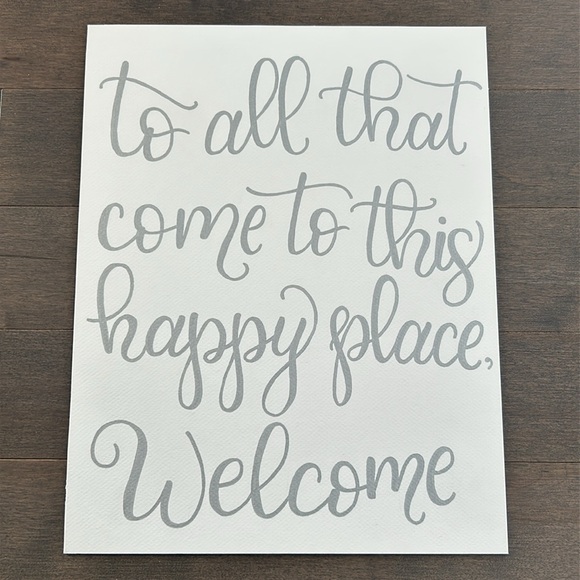 to all that
come to this
happy place,
Welcome